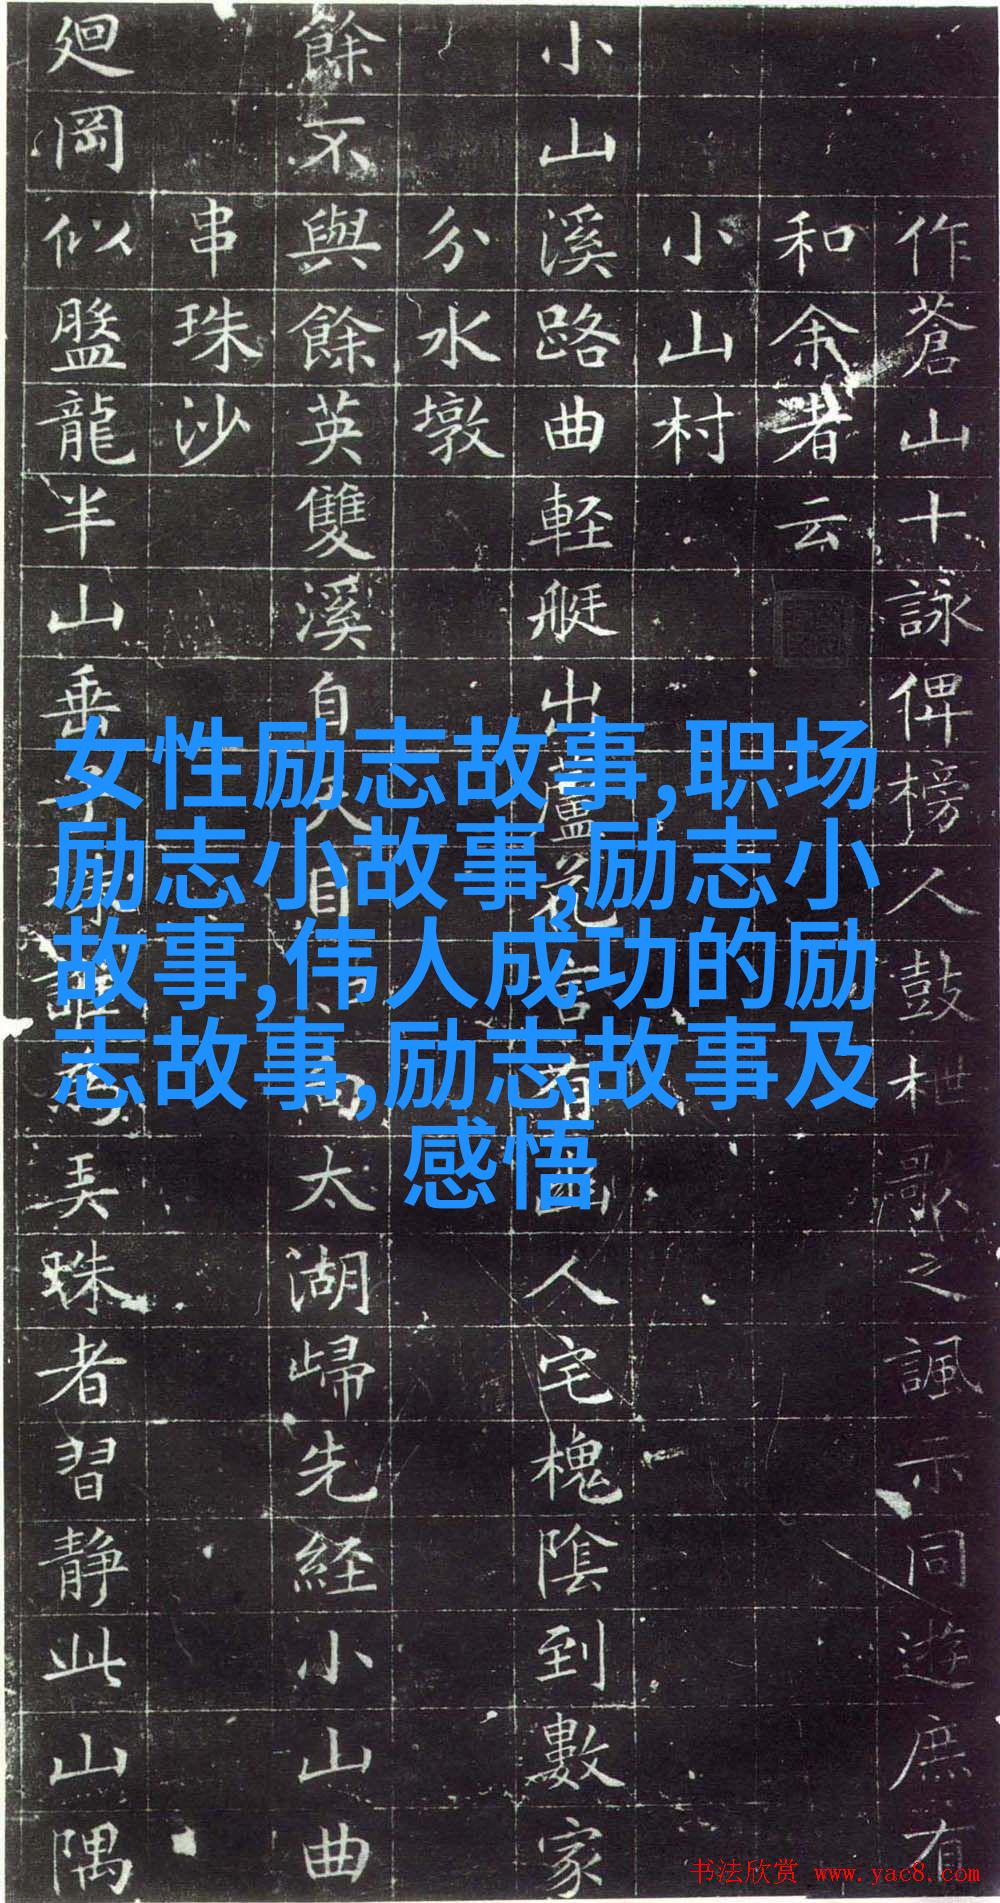 作蒼山十詠俾榜人鼓枻歌之諷示同遊庶有
和余者云
小山村
小山溪路曲軽艇出蘆花言有山人宅槐陰到數家
分水墩
餘不與餘英雙溪自天目向太湖歸先経小山曲
串珠沙
廻岡似盤龍半山垂珠誰為弄珠者習靜此山隅
女性励志故事,职场
励志小故事,励志小
故事,伟人成功的励
志故事,励志故事及
感悟
书法欣赏 www.yac8.com